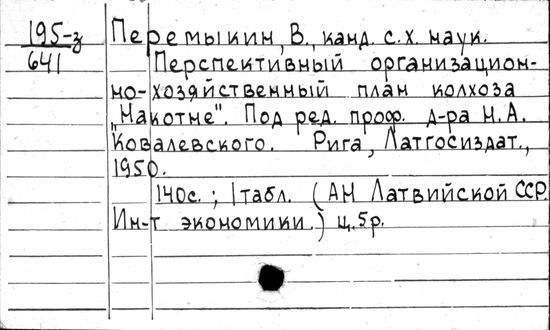 195-з
641
Перемыкин, В., канд. с.х. наук.
Перспективный организацион-
но-хозяйственный план колхоза
"Накотне". Под ред. проф. д-ра Н.А.
Ковалевского. Рига, Латгосиздат.,
1950.
140с. ; 1 табл. (АН Латвийской ССР.
Ин-т экономики.) ц. 5р.